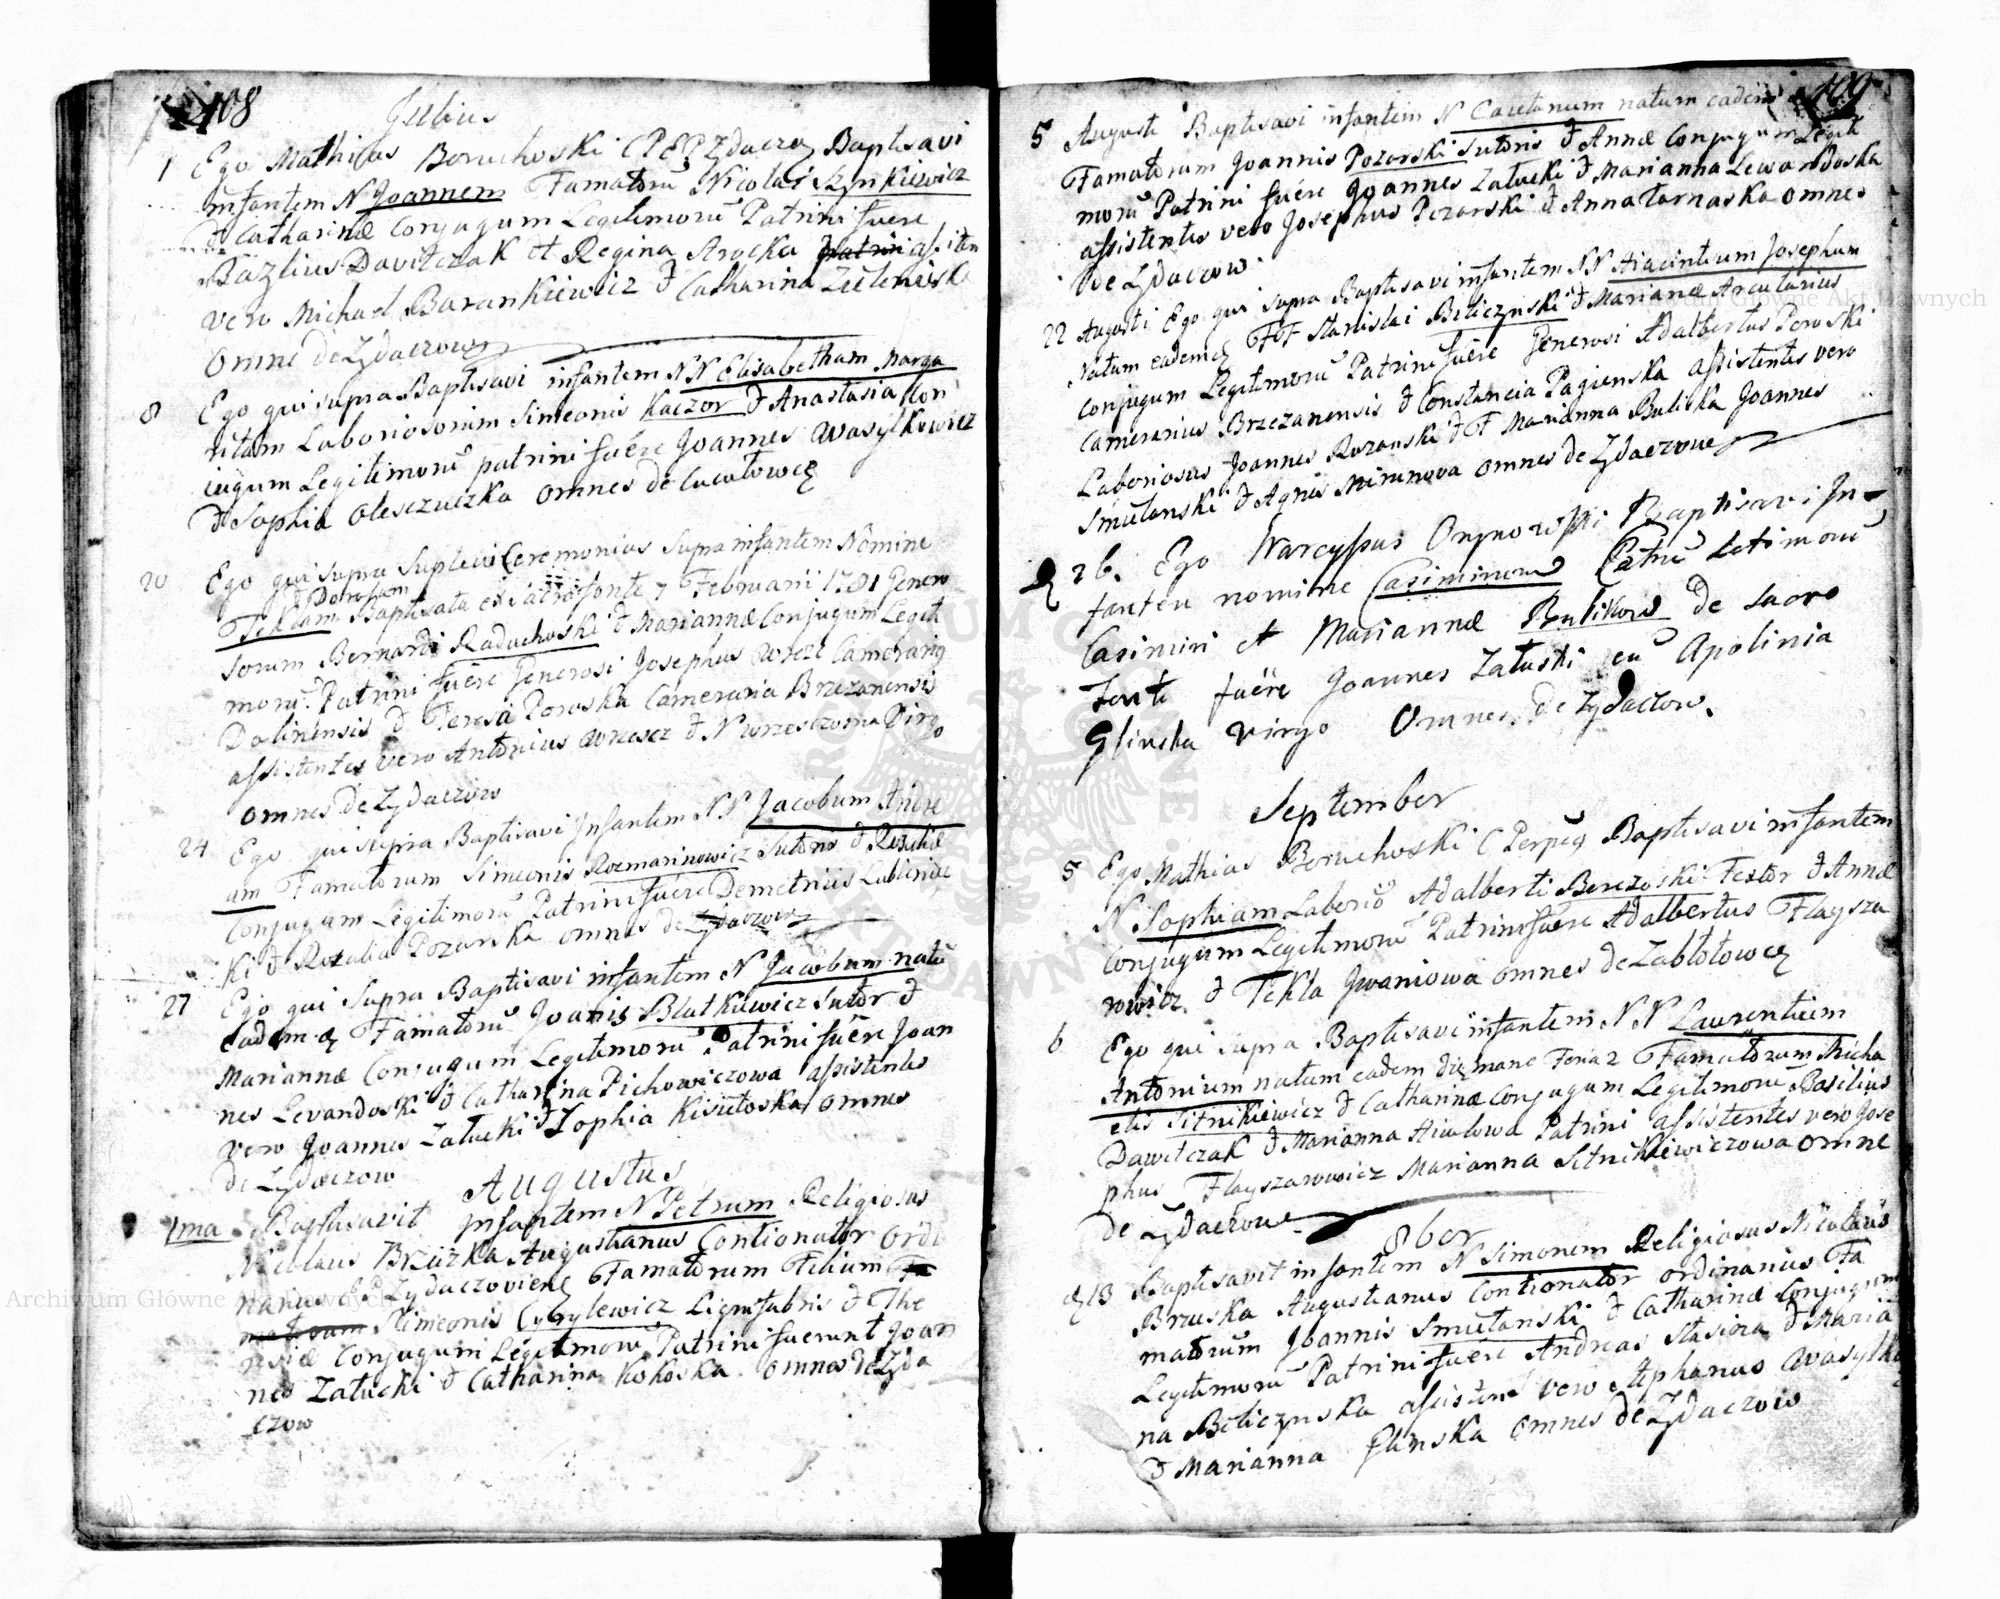 108
Julius
1 Ego Mathias Boruchoski CPEPZydaczoẏ Baptisavi
infantem N Joannem Famatorũ Nicolai Szynkiewicz
& Catharinæ Conjugum Legitimorũ Patrini fuere
Bazlius Davitczak et Regina Arocka assisten
vero Michael Barankiewicz & Catharina
omnes de Zydaczow
8 Ego qui supra Baptisavi infantem NN Elisabetham Marga
ritam Laboriosorum Simeonis Kaczor & Anastasia Con
iugum Legitimorũ patrini fuére Joannes Wasylkowicz
& Sophia Olesczuczka omnes de
20 Ego qui supra Suplevi Ceremonias supra infantem Nomine
& Dorotheam
Teklam Baptisata ex fonte 7 Februarii 1781 Genero
sorum Bernardi Raduchoski & Mariannæ Conjugum Legit
morũ Patrini fuére Generosi Josephus Wrzescz Camerariꝯ
Dolinensis & Teresia Poroska Cameraria Brzezanensis
assistentes vero Antonius Wrzescz & N Wrzesczowna Virgo
omnes de Zydaczow
24 Ego qui supra Baptisavi Infantem NN Jacobum Andre
am Famatorum Simeonis Rozmarinowicz Sutoris & Rozaliæ
Conjugum Legitimorũ Patrini fuére Demetrius Lublinie
ki & Rozalia Pozarska omnes de Zydaczow
27 Ego qui Supra Baptisavi infantem N Jacobum natũ
eadem Famatorũ Joanis Blatkiewicz Sutor &
Mariannæ Conjugum Legitimorũ Patrini fuére Joan
nes Levandoski & Catharina Pichowiczowa assistentes
vero Joannes Załucki & Zophia Kisieloska omnes
de Zydaczow
Augustus
1ma Baptisavit Infantem N Petrum Religiosus
Nicolaus Bruzka Augustianus Contionator Ordi
narius Zydaczoviens Famatorum Filium
Simeonis Cyrylewicz Lignifabris & The
resiæ Conjugum Legitimorũ Patrini fuerunt Joan
nes Załucki & Catharina Kokoska omnes de Zyda
czow
109
5 Augusti Baptisavi infantem N Caietanum natum eadem
Famatorum Joannis Pozarski Sutoris & Annæ Conjugum Legiti
morũ Patrini fuére Joannes Załucki & Marianna Lewandoska
assistentes vero Josephus Pozarski & Anna Tarnaska omnes
de Zydaczow
22 Augusti Ego qui supra Baptisavi infantem NN Hiacintum Josephum
Natum eadem FF Stanislai Biliczynski & Marianæ Arcularius
Conjugum Legitimorũ Patrini fuére Generosi Adalbertus Poroski
Camerarius Brzezanensis & Constancia Pagienska assistentes vero
Laboriosus Joannes Rozanski & F Marianna Buliska Joannes
Smutanski & Agnis Mironova omnes de Zydaczow
26. Ego Narcyssus Onynowski Baptisavi In-
fantem nomine Casimirum Patrũ Letimorũ
Casimiri et Mariannæ Bulikow de sacro
Fonte fuére Joannes Załuski cũ Apolinia
Glinska Virgo Omnes de Zydaczow.
September
5 Ego Mathias Boruchoski CPerpeꝯ Baptisavi infantem
N Sophiam Laborio Adalberti Berezoski Textor & Annæ
Conjugum Legitimorũ Patrini fuére Adalbertus Flaysza
rowicz & Tekla Iwaniowa omnes de Zabłotowce
6 Ego qui supra Baptisavi infantem NN Laurentium
Antonium natum eadem die mane Feria 2 Famatorum Micha
elis Sitnikiewicz & Catharinæ Conjugum Legitimorũ Basilius
Dawitczak & Marianna Patrini assistentes vero Jose
phus Flayszarowicz Marianna Sitnikiewiczowa omne
de Zydaczow
8ber
13 Baptisavit infantem N Simonem Religiosus Nicolaus
Bruska Augustianus Contionator ordinarius Fa
matorum Joannis Smutanski & Catharinæ Conjugum
Legitimorũ Patrini fuére Andreas Stasina & Maria
na Biliczynska assisten vero Stephanus Wasylko
& Marianna Glinska omnes de Zydaczow
Archiwum Główne Akt Dawnych
Archiwum Główne Akt Dawnych
ARCHIWUM GŁÓWNE AKT DAWNYCH